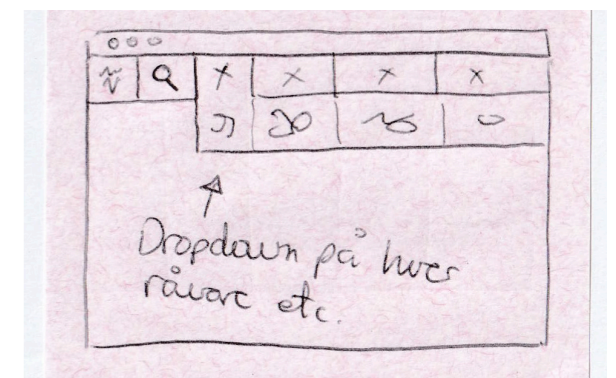 Dropdown på hver
råvare etc.